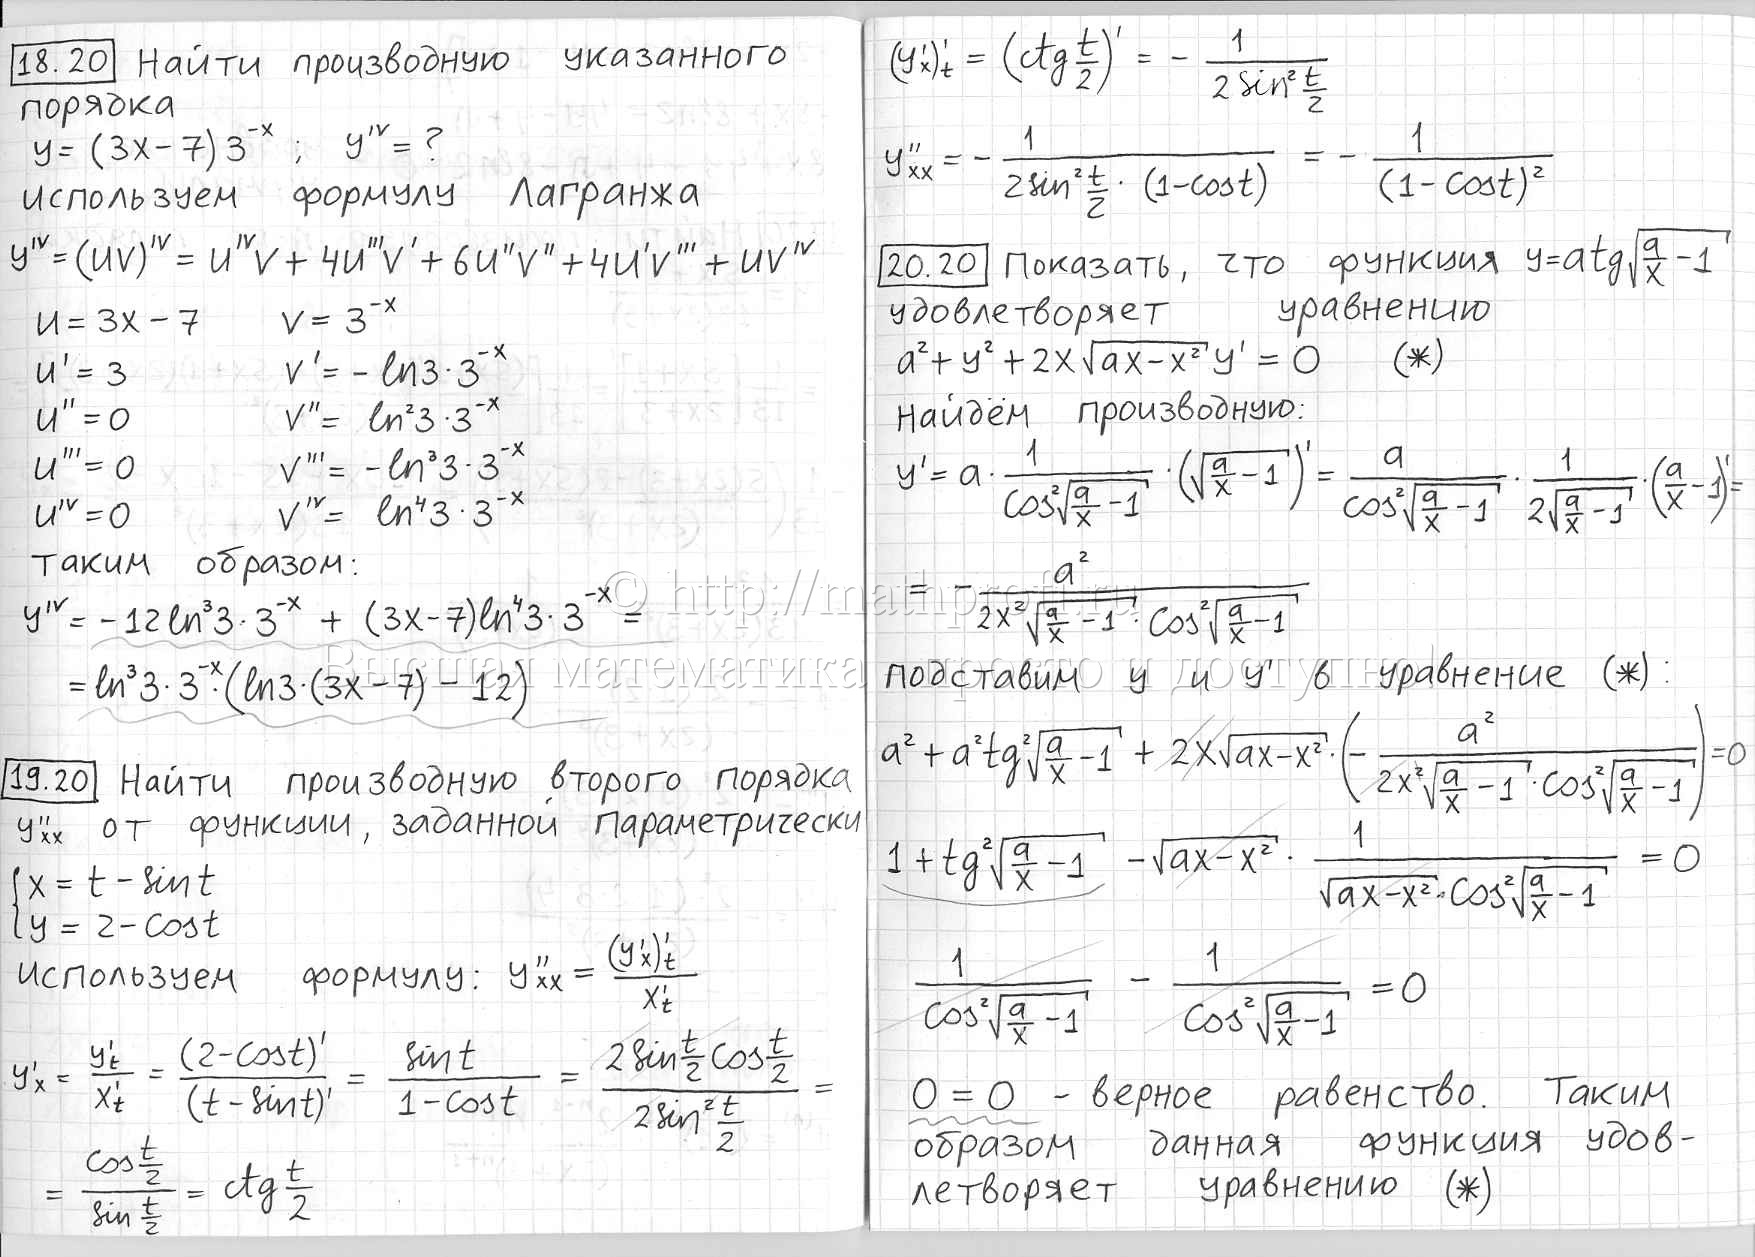 18.20 Найти производную указанного
порядка
y = (3x − 7) 3^{-x} ; y^{IV} = ?
используем формулу Лагранжа
y^{IV} = (uv)^{IV} = u^{IV}v + 4u'''v' + 6u''v'' + 4u'v''' + uv^{IV}
u = 3x − 7 v = 3^{-x}
u' = 3 v' = − ln3·3^{-x}
u'' = 0 v'' = ln²3·3^{-x}
u''' = 0 v''' = −ln³3·3^{-x}
u^{IV} = 0 v^{IV} = ln⁴3·3^{-x}
таким образом:
y^{IV} = −12ln³3·3^{-x} + (3x−7)ln⁴3·3^{-x} =
= ln³3·3^{-x}·(ln3·(3x−7) − 12)
19.20 Найти производную второго порядка
y''_{xx} от функции, заданной параметрически
{ x = t − sint
{ y = 2 − cost
используем формулу: y''_{xx} = (y'_x)'_t / x'_t
y'_x = y'_t / x'_t = (2−cost)' / (t−sint)' = sint / (1−cost) = 2sin(t/2)cos(t/2) / 2sin²(t/2) =
= cos(t/2) / sin(t/2) = ctg(t/2)
(y'_x)'_t = (ctg(t/2))' = − 1 / (2sin²(t/2))
y''_{xx} = − 1 / (2sin²(t/2)·(1−cost)) = − 1 / (1−cost)²
20.20 Показать, что функция y=atg√(a/x − 1)
удовлетворяет уравнению
a² + y² + 2x√(ax−x²) y' = 0 (*)
Найдём производную:
y' = a · 1 / cos²√(a/x − 1) · (√(a/x − 1))' = a / cos²√(a/x − 1) · 1 / (2√(a/x − 1)) · (a/x − 1)' =
= − a² / (2x²√(a/x − 1) · cos²√(a/x − 1))
подставим y и y' в уравнение (*):
a² + a²tg²√(a/x − 1) + 2x√(ax−x²) · (− a² / (2x²√(a/x − 1) · cos²√(a/x − 1))) = 0
1 + tg²√(a/x − 1) − √(ax−x²) · 1 / (√(ax−x²) · cos²√(a/x − 1)) = 0
1 / cos²√(a/x − 1) − 1 / cos²√(a/x − 1) = 0
0 = 0 - верное равенство. Таким
образом данная функция удов-
летворяет уравнению (*)
© http://mathprofi.ru
Высшая математика – просто и доступно!